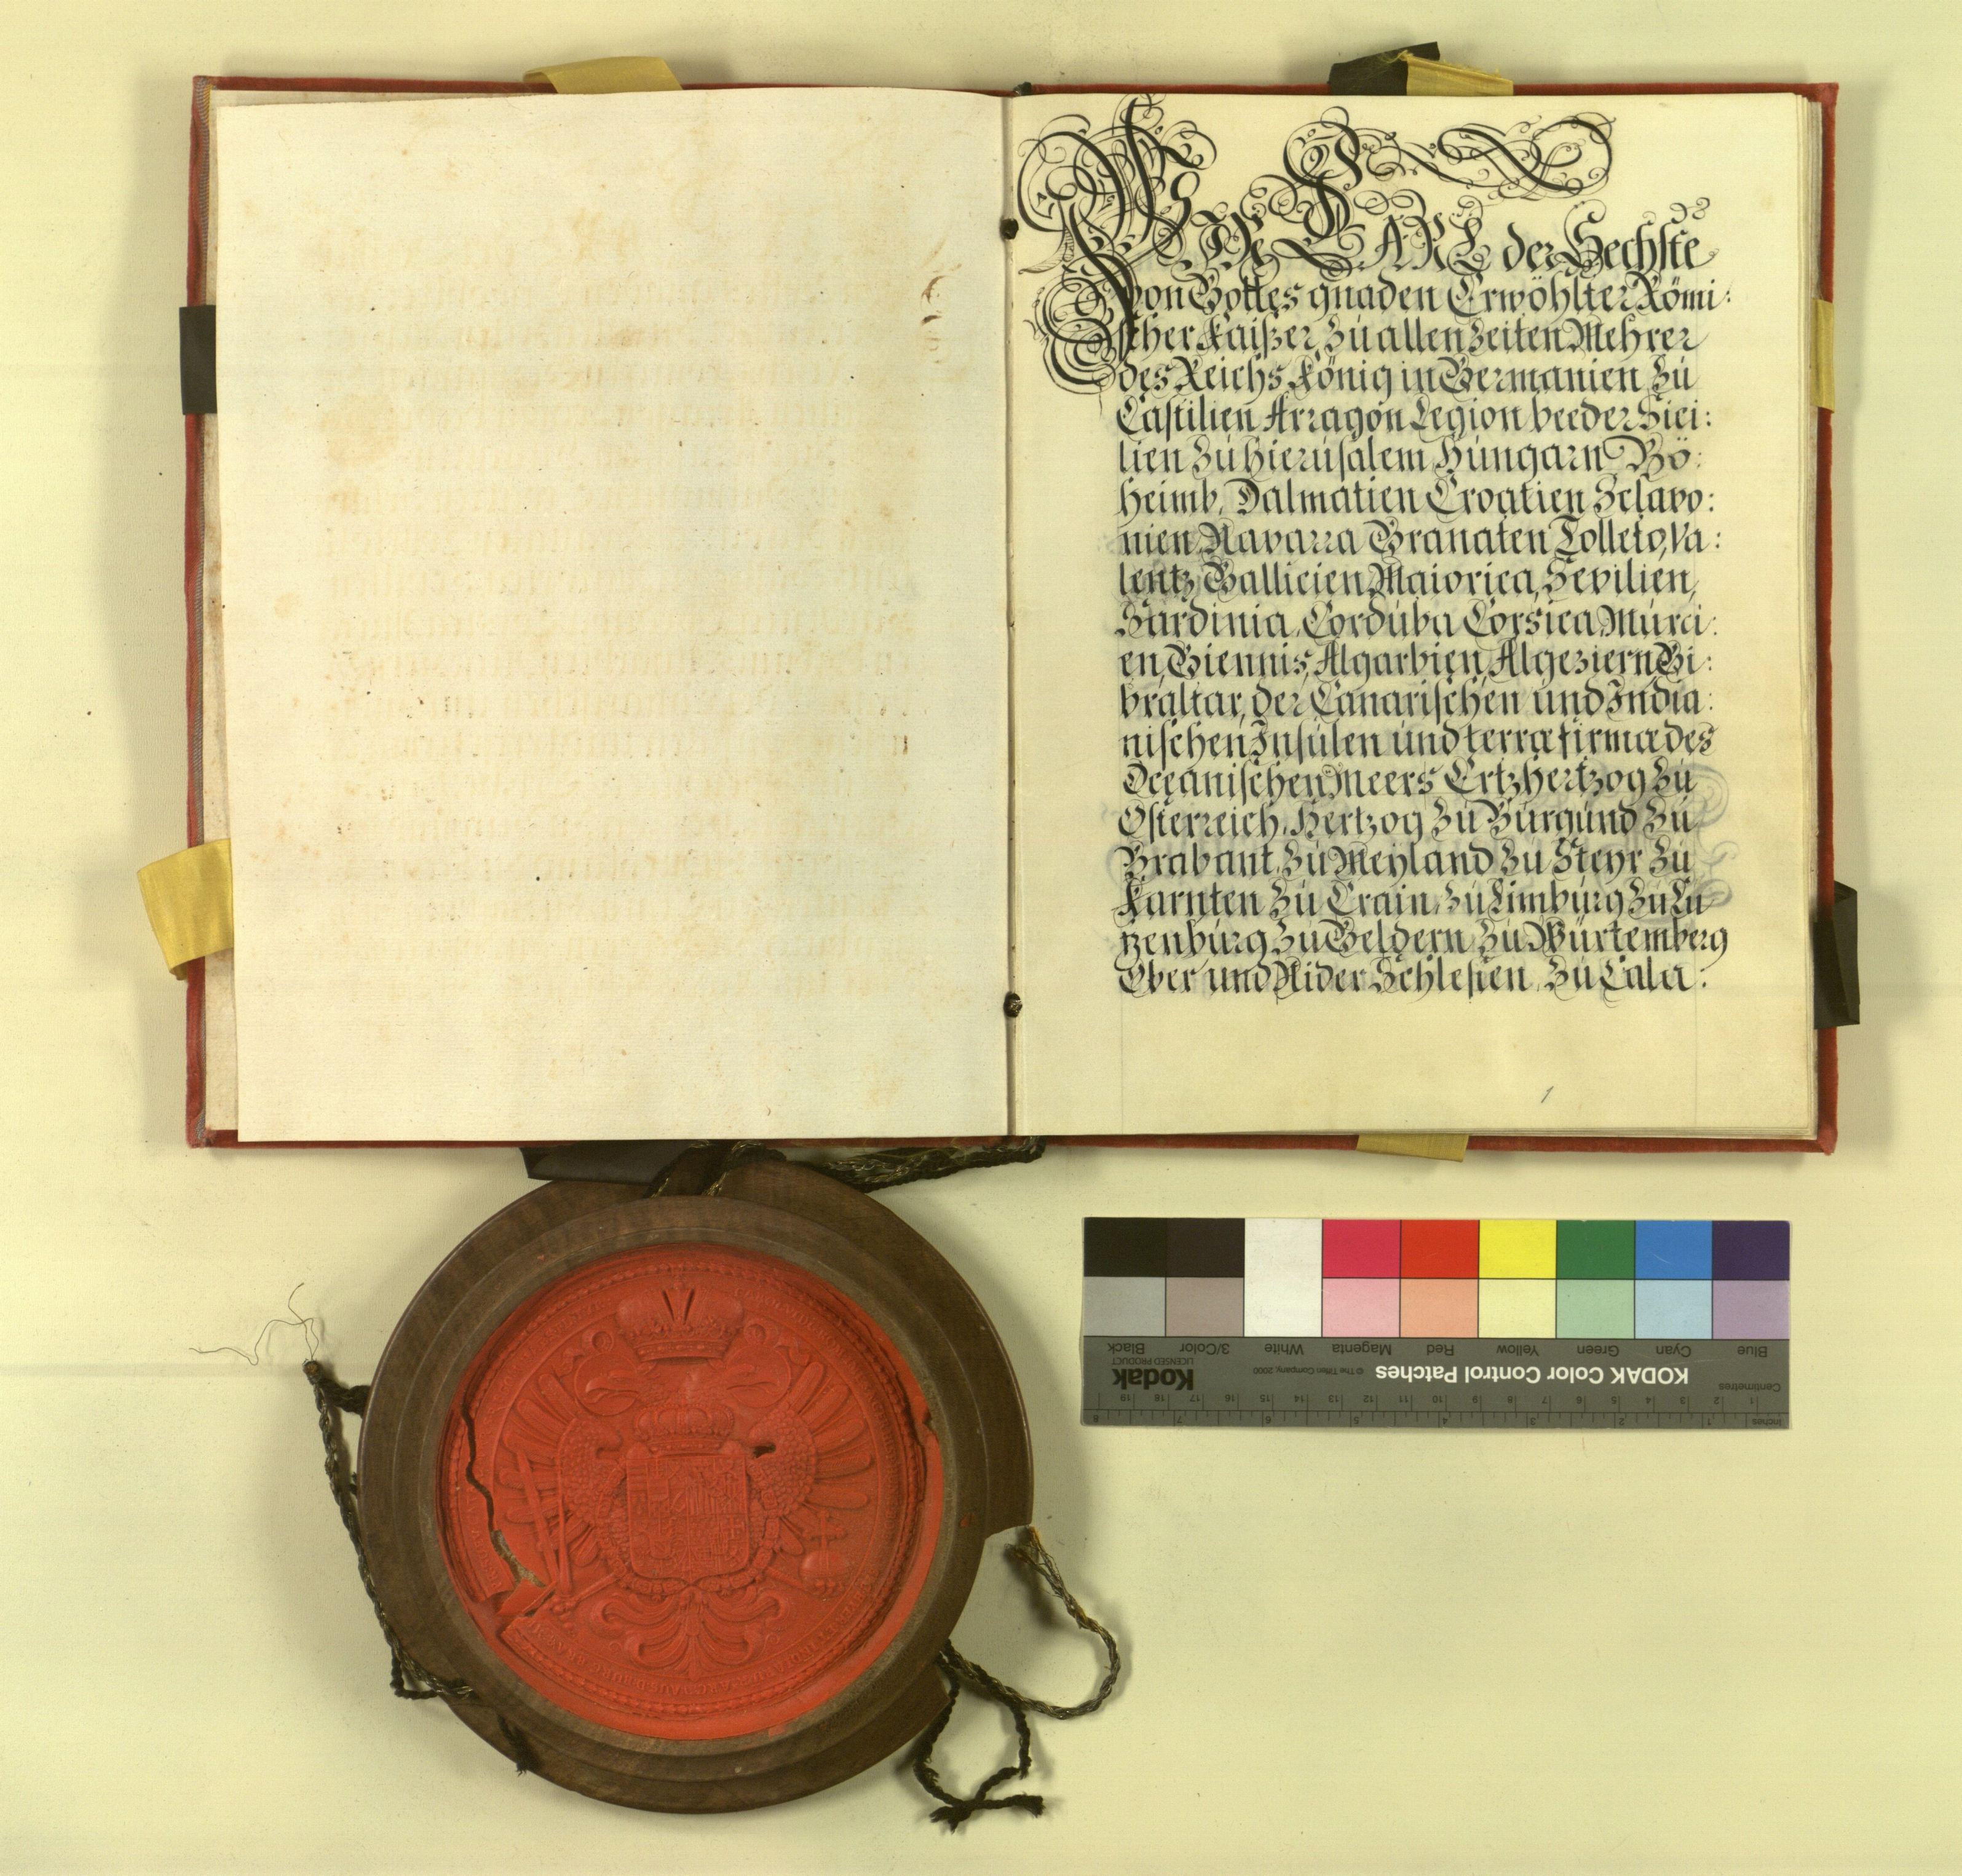 WIR CARL der Sechste
von Gottes gnaden Erwöhlter Römi:
scher Kaißer, Zu allen Zeiten Mehrer
des Reichs, König in Germanien, Zu
Castilien Arragon Legion beeder Sici:
lien Zu Hierusalem Hungarn Bö:
heimb, Dalmatien Croatien Sclavo:
nien, Navarra Granaten Tolleto, Va:
lentz, Gallicien, Maiorica, Sevilien,
Sardinia, Corduba Corsica, Murci:
en, Giennis, Algarbien, Algeziern, Gi:
braltar, der Canarischen und India:
nischen Insulen und terræ firmæ des
Oceanischen Meers Ertzhertzog Zu
Österreich, Hertzog Zu Burgund Zu
Brabant, Zu Meyland Zu Steyr Zu
Karnten Zu Crain, Zu Limburg Zu Lu
tzenburg Zu Geldern Zu Würtemberg
Ober und Nider Schlesien, Zu Cala:
1
Blue Cyan Green Yellow Red Magenta White 3/Color Black
KODAK Color Control Patches
© The Tiffen Company, 2000
Kodak
LICENSED PRODUCT
Centimetres 1 2 3 4 5 6 7 8 9 10 11 12 13 14 15 16 17 18 19
Inches 1 2 3 4 5 6 7 8